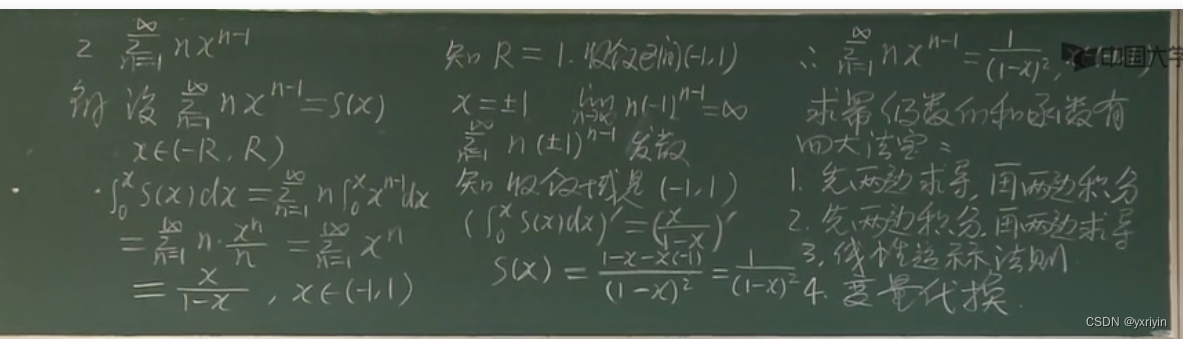 2 ∞∑n=1 nx^{n-1}
解 设 ∞∑n=1 nx^{n-1}=S(x)
x∈(-R, R)
∫_0^x S(x)dx = ∞∑n=1 n∫_0^x x^{n-1}dx
= ∞∑n=1 n·x^n/n = ∞∑n=1 x^n
= x/(1-x), x∈(-1,1)
知 R = 1. 收敛区间(-1,1)
x=±1 lim n→∞ n(-1)^{n-1}=∞
∞∑n=1 n(±1)^{n-1} 发散
知收敛域是 (-1,1)
(∫_0^x S(x)dx)' = (x/(1-x))'
S(x) = (1-x-x(-1))/(1-x)^2 = 1/(1-x)^2
∴ ∞∑n=1 nx^{n-1} = 1/(1-x)^2,
求幂级数的和函数有
四大法宝:
1. 先两边求导, 再两边积分
2. 先两边积分, 再两边求导
3. 线性运算法则
4. 变量代换.
中国大学
CSDN @yxriyin